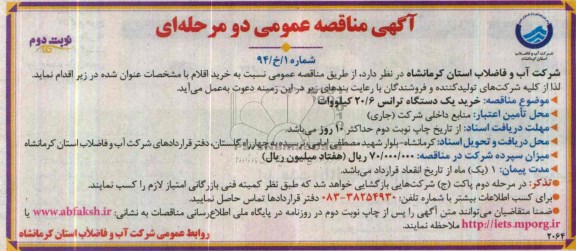 آگهی مناقصه عمومی دو مرحله‌ای
نوبت دوم
شماره ۹۴/خ/۱
شرکت آب و فاضلاب
استان کرمانشاه
شرکت آب و فاضلاب استان کرمانشاه در نظر دارد، از طریق مناقصه عمومی نسبت به خرید اقلام با مشخصات عنوان شده در زیر اقدام نماید.
لذا از کلیه شرکت‌های تولیدکننده و فروشندگان با رعایت بندهای زیر در این زمینه دعوت به‌عمل می‌آید.
موضوع مناقصه: خرید یک دستگاه ترانس ۲۰/۶ کیلووات
محل تأمین اعتبار: منابع داخلی شرکت (جاری)
مهلت دریافت اسناد: از تاریخ چاپ نوبت دوم حداکثر ۱۰ روز می‌باشد.
محل دریافت و تحویل اسناد: کرمانشاه-بلوار شهید مصطفی امامی-نرسیده به چهارراه گلستان، دفتر قراردادهای شرکت آب و فاضلاب استان کرمانشاه
میزان سپرده شرکت در مناقصه: ۷۰/۰۰۰/۰۰۰ ریال (هفتاد میلیون ریال)
مدت پیمان: ۱ (یک) ماه از تاریخ انعقاد قرارداد می‌باشد.
تذکر: در مرحله دوم پاکت (ج) شرکت‌هایی بازگشایی خواهد شد که طبق نظر کمیته فنی بازرگانی امتیاز لازم را کسب نمایند.
برای کسب اطلاعات بیشتر با شماره تلفن: ۳۸۲۵۴۹۳۰-۰۸۳ دفتر قراردادها تماس حاصل نمایید.
ضمنا متقاضیان می‌توانند متن آگهی را پس از چاپ نوبت دوم در روزنامه در پایگاه ملی اطلاع‌رسانی مناقصات به نشانی: www.abfaksh.ir یا
http://iets.mporg.ir ملاحظه نمایند.
روابط عمومی شرکت آب و فاضلاب استان کرمانشاه
۲۰۶۴